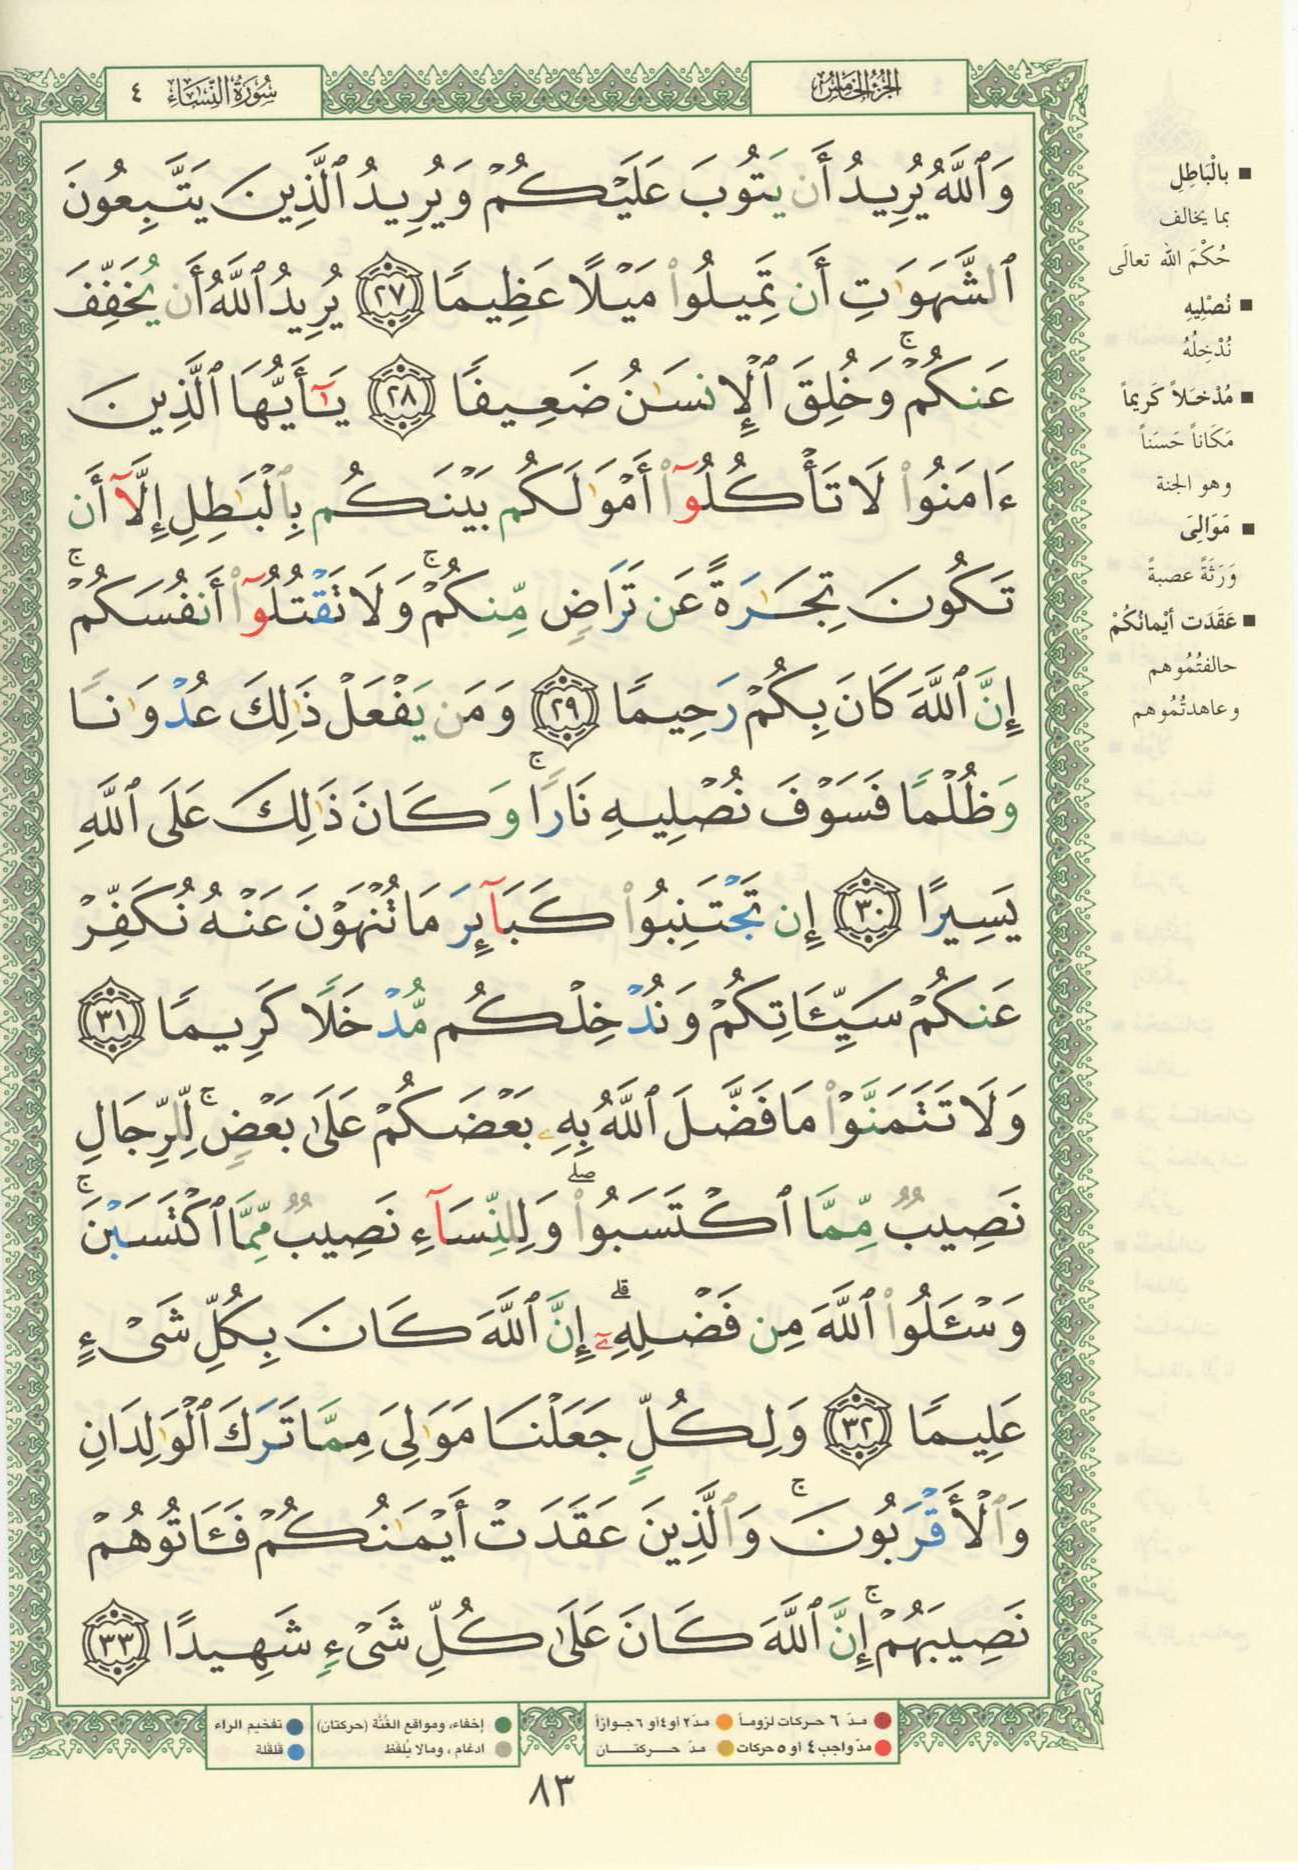 الجزء الخامس
سورة النساء ٤
وَٱللَّهُ يُرِيدُ أَن يَتُوبَ عَلَيْكُمْ وَيُرِيدُ ٱلَّذِينَ يَتَّبِعُونَ
ٱلشَّهَوَٰتِ أَن تَمِيلُوا۟ مَيْلًا عَظِيمًا ٢٧ يُرِيدُ ٱللَّهُ أَن يُخَفِّفَ
عَنكُمْ ۚ وَخُلِقَ ٱلْإِنسَـٰنُ ضَعِيفًا ٢٨ يَـٰٓأَيُّهَا ٱلَّذِينَ
ءَامَنُوا۟ لَا تَأْكُلُوٓا۟ أَمْوَٰلَكُم بَيْنَكُم بِٱلْبَـٰطِلِ إِلَّآ أَن
تَكُونَ تِجَـٰرَةً عَن تَرَاضٍ مِّنكُمْ ۚ وَلَا تَقْتُلُوٓا۟ أَنفُسَكُمْ ۚ
إِنَّ ٱللَّهَ كَانَ بِكُمْ رَحِيمًا ٢٩ وَمَن يَفْعَلْ ذَٰلِكَ عُدْوَٰنًا
وَظُلْمًا فَسَوْفَ نُصْلِيهِ نَارًا ۚ وَكَانَ ذَٰلِكَ عَلَى ٱللَّهِ
يَسِيرًا ٣٠ إِن تَجْتَنِبُوا۟ كَبَآئِرَ مَا تُنْهَوْنَ عَنْهُ نُكَفِّرْ
عَنكُمْ سَيِّـَٔاتِكُمْ وَنُدْخِلْكُم مُّدْخَلًا كَرِيمًا ٣١
وَلَا تَتَمَنَّوْا۟ مَا فَضَّلَ ٱللَّهُ بِهِۦ بَعْضَكُمْ عَلَىٰ بَعْضٍ ۚ لِّلرِّجَالِ
نَصِيبٌ مِّمَّا ٱكْتَسَبُوا۟ ۖ وَلِلنِّسَآءِ نَصِيبٌ مِّمَّا ٱكْتَسَبْنَ ۚ
وَسْـَٔلُوا۟ ٱللَّهَ مِن فَضْلِهِۦٓ ۗ إِنَّ ٱللَّهَ كَانَ بِكُلِّ شَىْءٍ
عَلِيمًا ٣٢ وَلِكُلٍّ جَعَلْنَا مَوَٰلِىَ مِمَّا تَرَكَ ٱلْوَٰلِدَانِ
وَٱلْأَقْرَبُونَ ۚ وَٱلَّذِينَ عَقَدَتْ أَيْمَـٰنُكُمْ فَـَٔاتُوهُمْ
نَصِيبَهُمْ ۚ إِنَّ ٱللَّهَ كَانَ عَلَىٰ كُلِّ شَىْءٍ شَهِيدًا ٣٣
■ بالْبَاطِلِ
بما يخالف
حُكْمَ الله تعالَى
■ نُصْلِيهِ
نُدْخِلُهُ
■ مُدْخَلاً كَريماً
مَكَاناً حَسَناً
وهو الجنة
■ مَوَالِيَ
وَرَثَةً عصبةً
■ عَقَدَت أيْمانُكُمْ
حالفتُمُوهم
وعاهدتُمُوهم
مدّ ٦ حركات لزوماً مدّ ٢ أو ٤ أو ٦ جوازاً
مدّ واجب ٤ أو ٥ حركات مدّ حركتان
إخفاء، ومواقع الغُنَّة (حركتان) تفخيم الراء
ادغام ، ومالا يُلفَظ قلقلة
٨٣